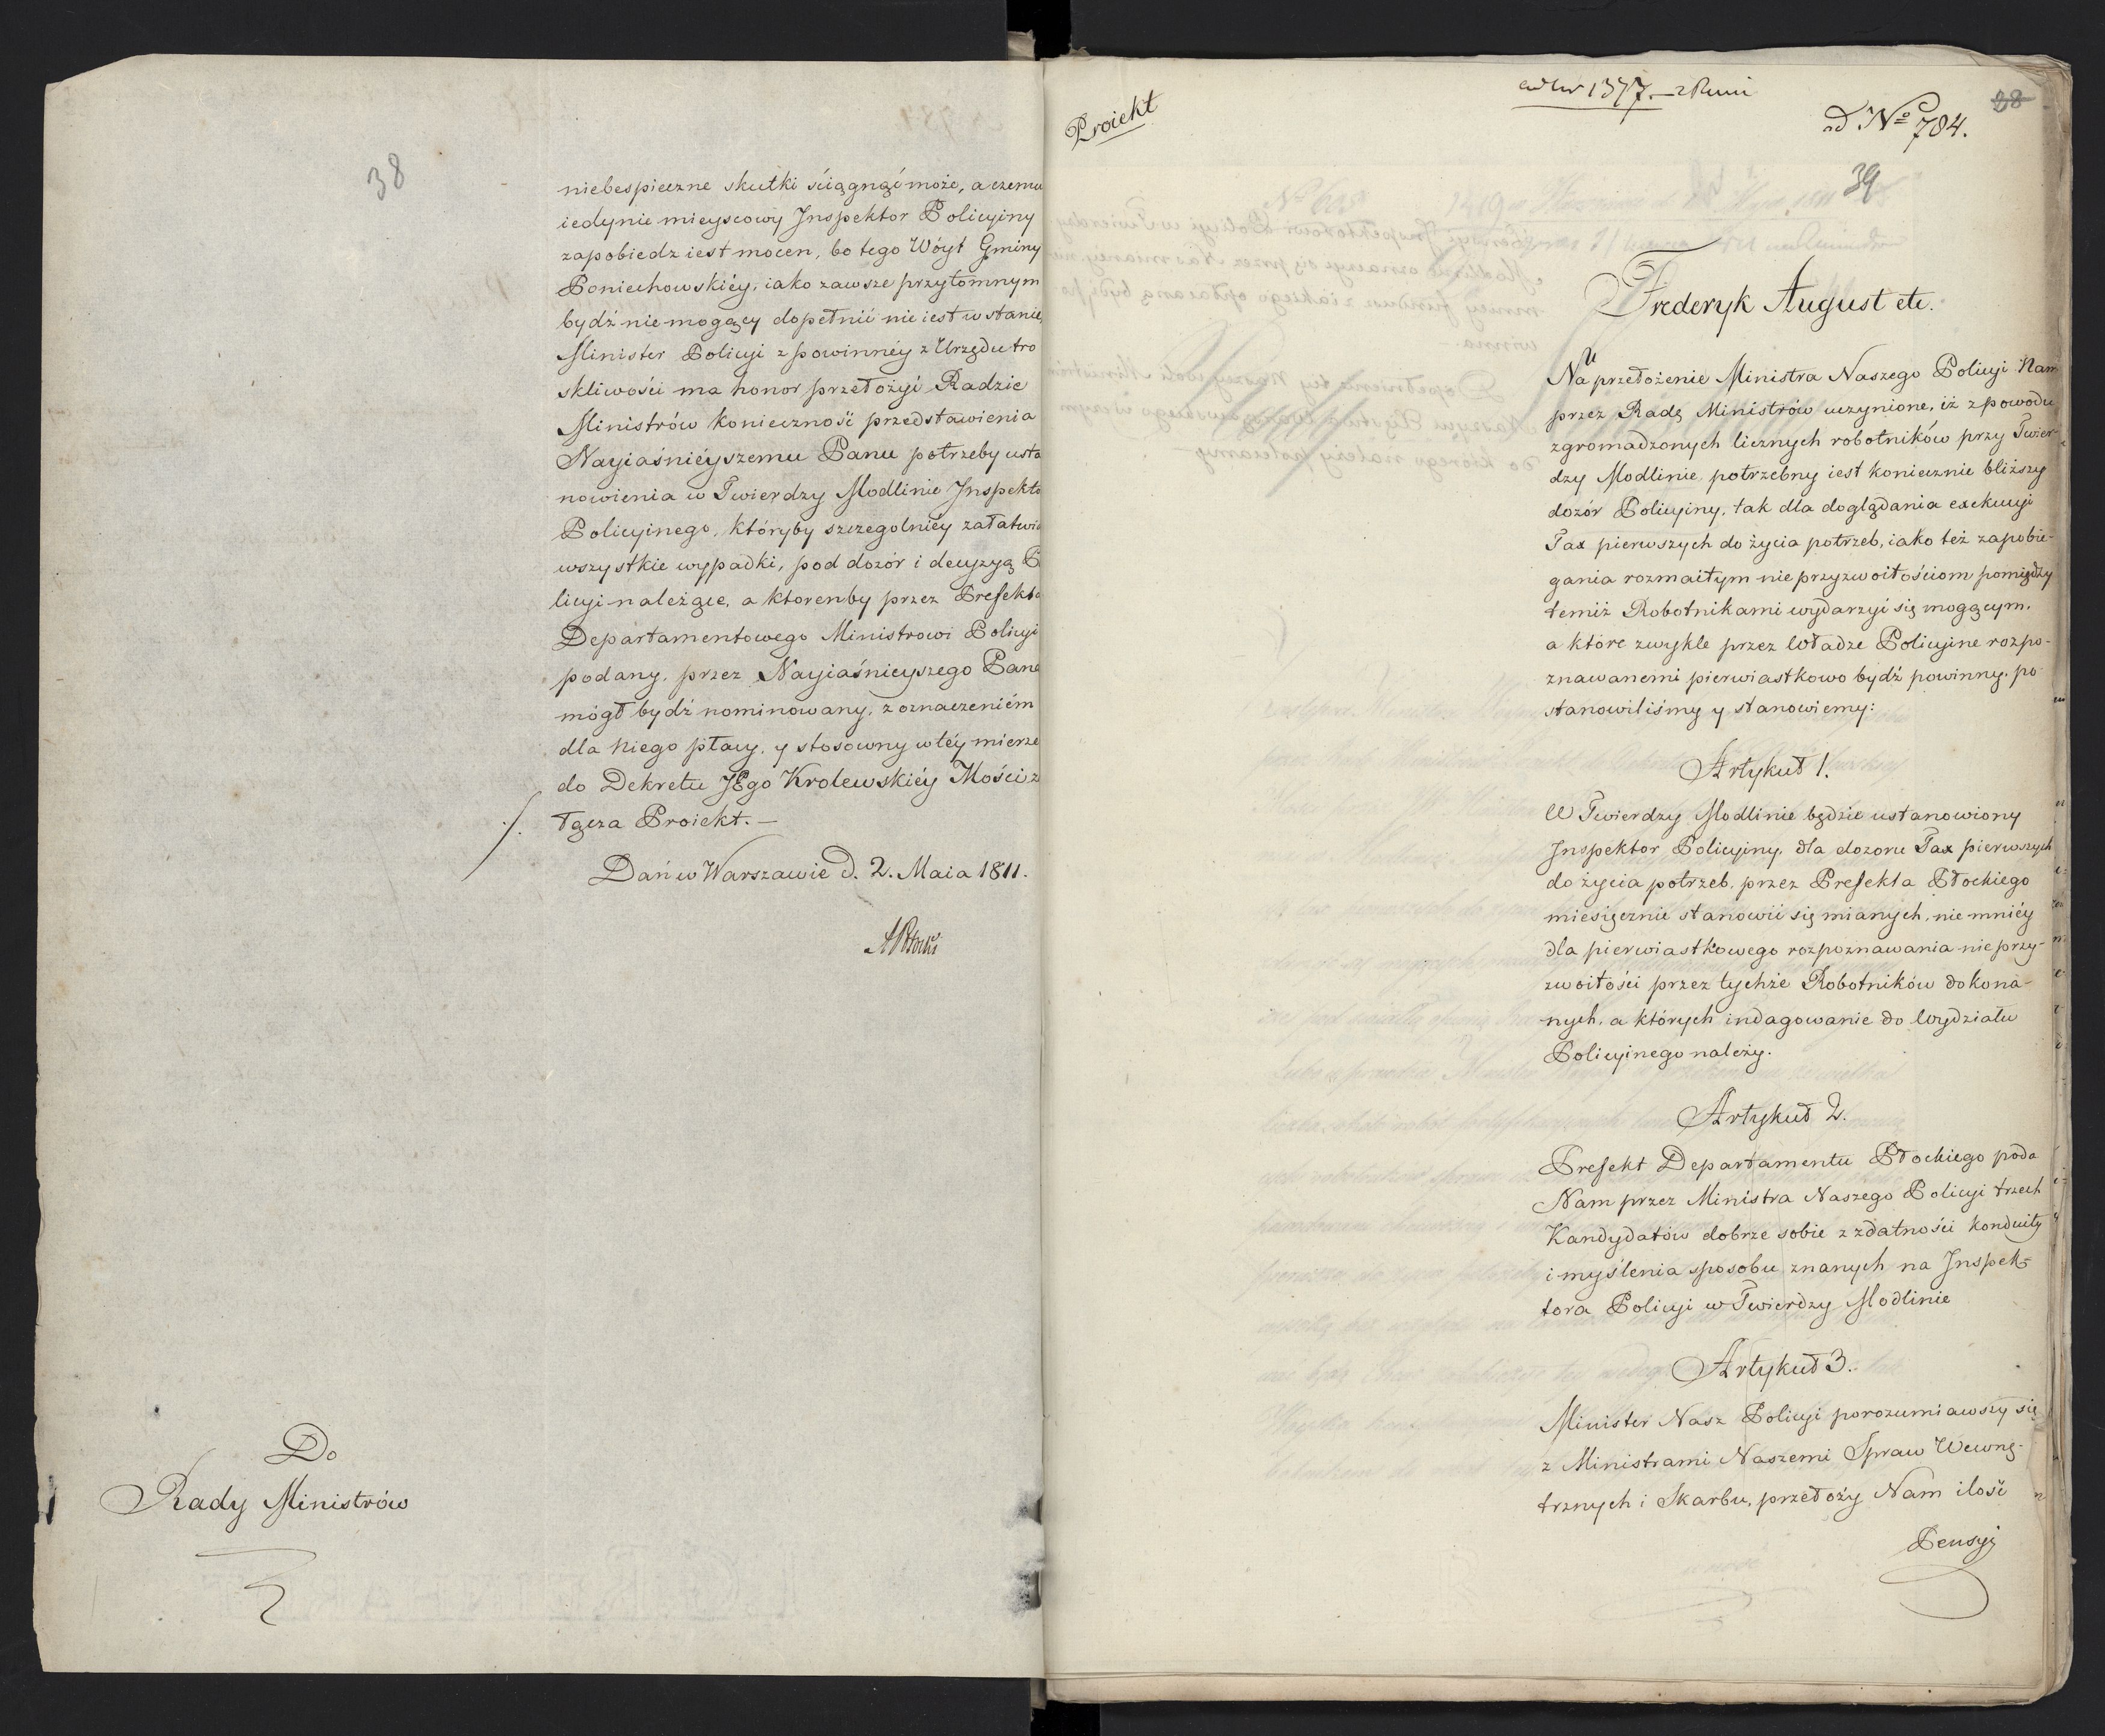 38
niebespieczne skutki ściągnąć może, a czemu
iedynie mieyscowy Inspektor Policyiny
zapobiedz iest mocen, bo tego Wóyt Gminy
Poniechowskiéy, iako zawsze przytomnym
bydź nie mogący dopełnić nie iest w stanie,
Minister Policyi z powinnéy z Urzędu tro
skliwości ma honor przełożyć Radzie
Ministrów konieczność przedstawienia
Nayiaśniéyszemu Panu potrzeby usta
nowienia w Twierdzy Modlinie Inspekto
Policyinego, któryby szczegolniéy załatwia
wszystkie wypadki, pod dozór i decyzyą P
licyi należące, a ktorenby przez Prefekta
Departamentowego Ministrowi Policyi
podany, przez Nayiaśnieyszego Pana
mógł bydź nominowany, z oznaczeniém
dla niego płacy, y stosowny w téy mierze
do Dekretu JEgo Krolewskiéy Mości z
łącza Proiekt. —
./.
Dań w Warszawie d. 2. Maia 1811.
APotocki
Do
Rady Ministrów
Proiekt
1377.
ad No 784.
28
39
Frederyk August etc.
Na przełożenie Ministra Naszego Policyi Nam
przez Radę Ministrów uczynione, iż z powodu
zgromadzonych licznych robotników przy Twier-
dzy Modlinie potrzebny iest koniecznie bliższy
dozór Policyiny, tak dla doglądania exekucyi
Tax pierwszych do życia potrzeb, iako też zapobie-
gania rozmaitym nieprzyzwoitościom pomiędzy
temiż Robotnikami wydarzyć się mogącym,
a które zwykle przez Władze Policyine rozpo-
znawanemi pierwiastkowo bydź powinny, po-
stanowiliśmy y stanowiemy:
Artykuł 1.
W Twierdzy Modlinie będzie ustanowiony
Inspektor Policyiny, dla dozoru Tax pierwszych
do życia potrzeb, przez Prefekta Płockiego
miesięcznie stanowić się mianych, nie mniéy
dla pierwiastkowego rozpoznawania nieprzy-
zwoitości przez tychże Robotników dokona-
nych, a których indagowanie do Wydziału
Policyinego należy.
Artykuł 2.
Prefekt Departamentu Płockiego poda
Nam przez Ministra Naszego Policyi trzech
Kandydatów dobrze sobie z zdatności konduity
i myślenia sposobu znanych na Inspek-
tora Policyi w Twierdzy Modlinie
Artykuł 3.
Minister Nasz Policyi porozumiawszy się
z Ministrami Naszemi Spraw Wewnę-
trznych i Skarbu, przełoży Nam ilość
Pensyi